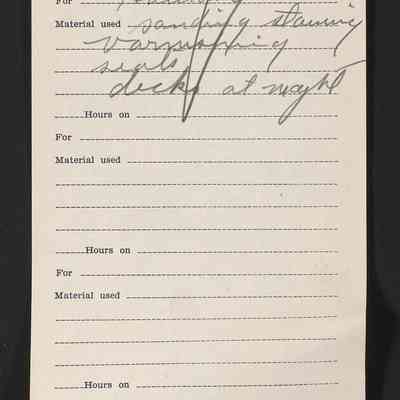 For
Material used sanding staining
varnishing
seats
decks at night
Hours on
For
Material used
Hours on
For
Material used
Hours on